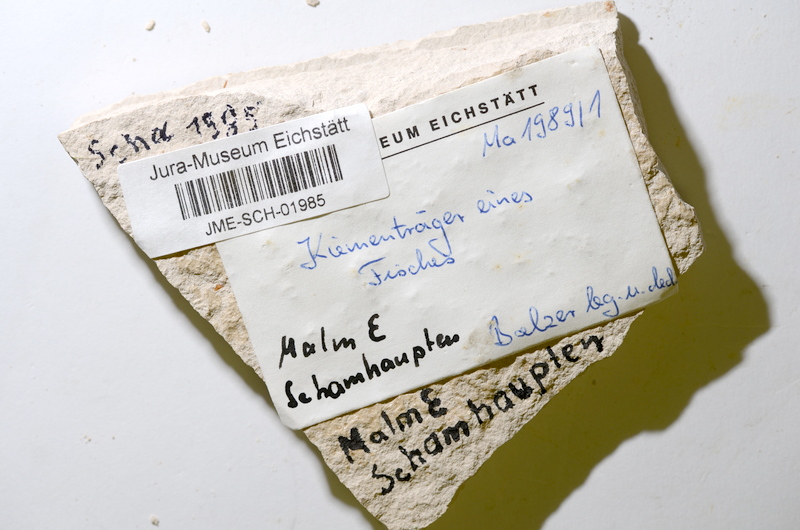 Scha 1985
Jura-Museum Eichstätt
JME-SCH-01985
EUM EICHSTÄTT
Ma 1989/1
Kiementräger eines
Fisches
Malm E
Schamhaupten
Balzer leg. u. ded.
Malm E
Schamhaupten